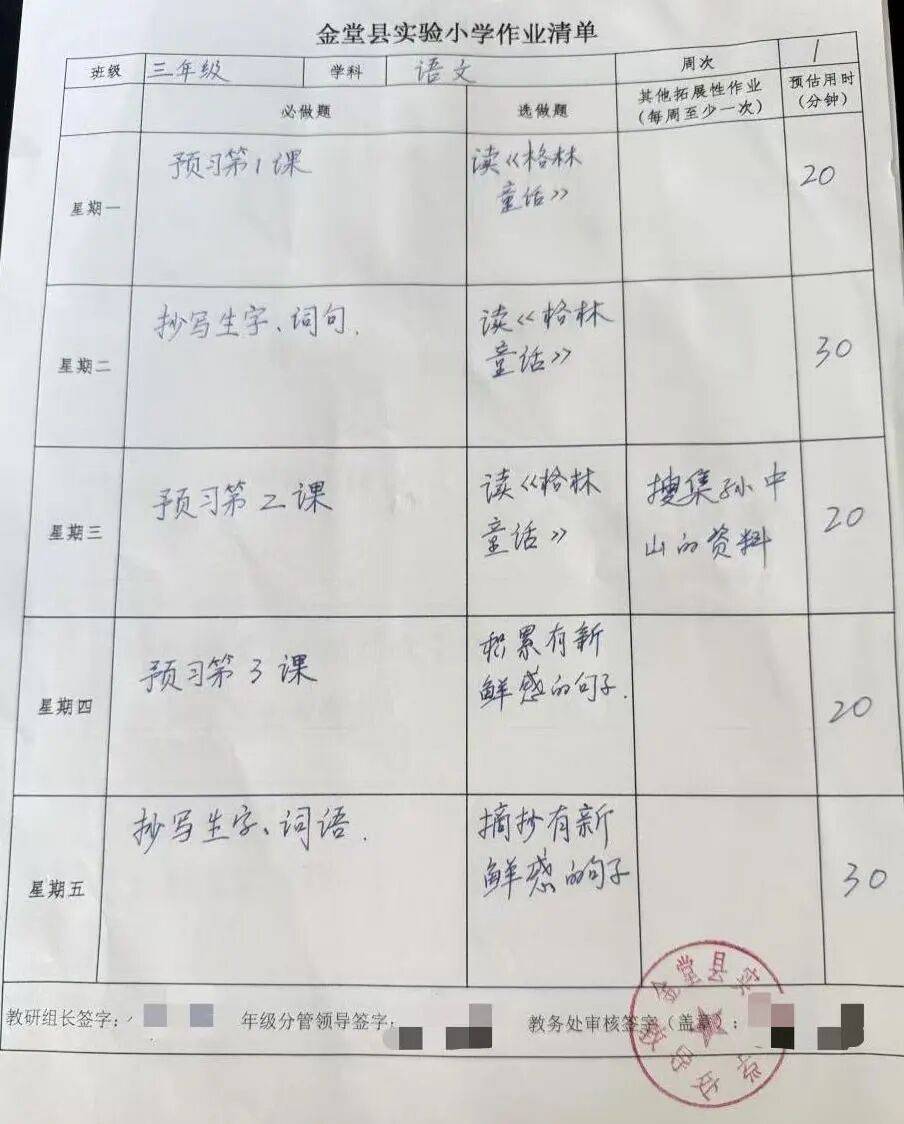 金堂县实验小学作业清单
班级 三年级 学科 语文 周次 1
必做题 选做题 其他拓展性作业 预估用时
(每周至少一次) (分钟)
星期一 预习第1课 读《格林 20
童话》
星期二 抄写生字、词句. 读《格林 30
童话》
星期三 预习第2课 读《格林 搜集孙中 20
童话》 山的资料
星期四 预习第3课 积累有新 20
鲜感的句子.
星期五 抄写生字、词语. 摘抄有新 30
鲜感的句子
教研组长签字: 年级分管领导签字: 教务处审核签字(盖章):
金堂县实